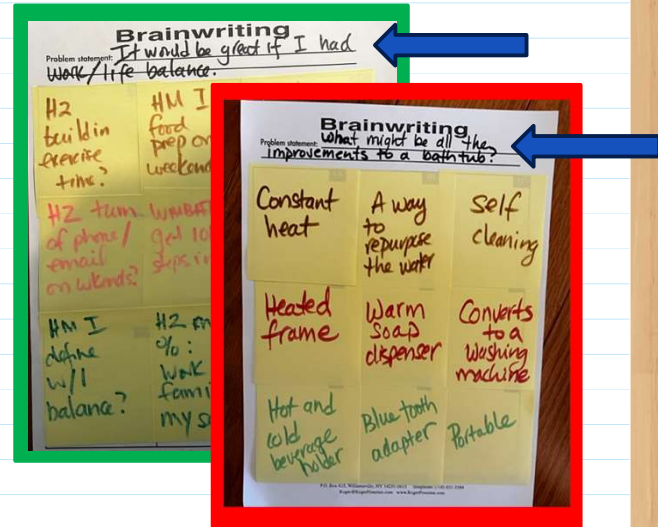 Brainwriting
Problem statement: It would be great if I had
work/life balance.
H2
build in
exercise
time?
HM I
food
prep on
weekend
H2 turn
of phone/
email
on wkends?
WMBAT
get 10
steps in
HM I
define
w/l
balance?
H2
%:
work
fami
my s
Brainwriting
Problem statement: What might be all the
improvements to a bathtub?
Constant
heat
A way
to
repurpose
the water
Self
cleaning
Heated
frame
Warm
soap
dispenser
Converts
to a
washing
machine
Hot and
cold
beverage
holder
Blue tooth
adapter
Portable
P.O. Box 615, Williamsville, NY 14231-0615